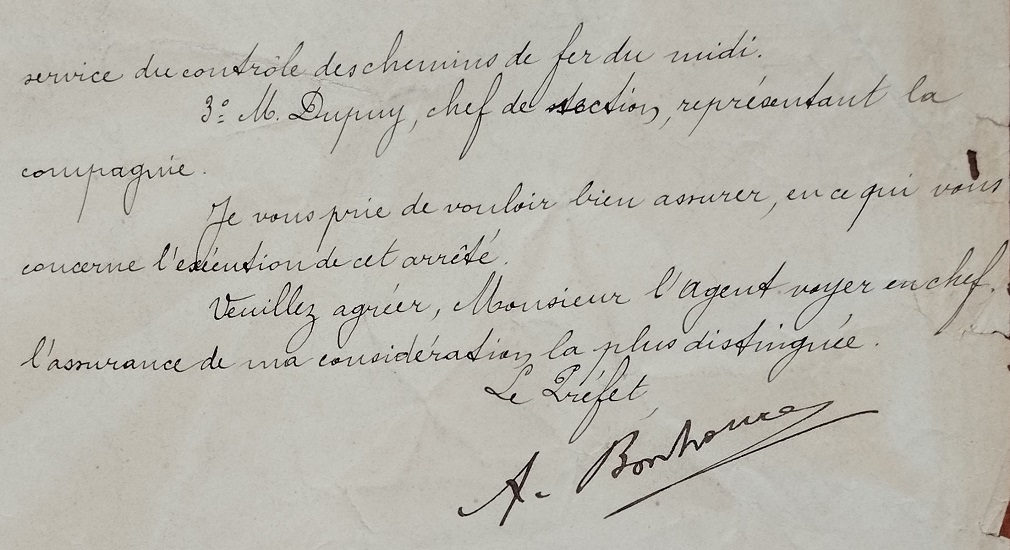 service du contrôle des chemins de fer du midi.
3º M. Dupuy, chef de section, représentant la
compagnie.
Je vous prie de vouloir bien assurer, en ce qui vous
concerne l'exécution de cet arrêté.
Veuillez agréer, Monsieur l'agent voyer en chef,
l'assurance de ma considération la plus distinguée.
Le Préfet
A. Bonhoure